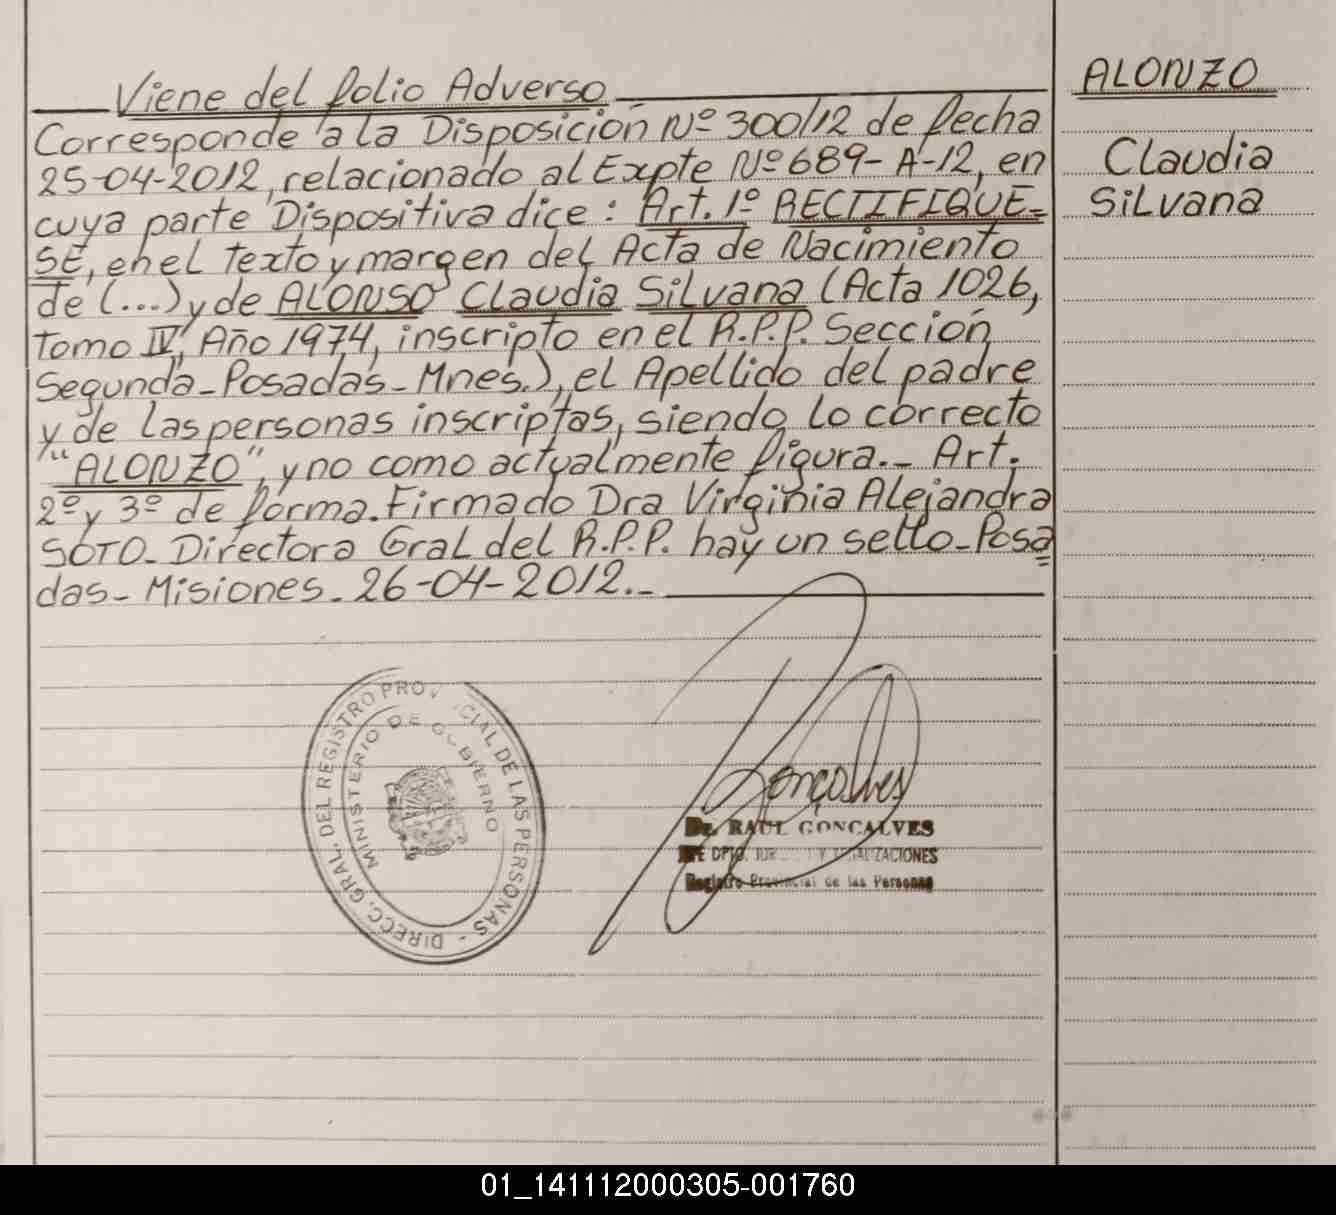 Viene del folio Adverso
Corresponde a la Disposición Nº 300/12 de fecha
25-04-2012, relacionado al Expte Nº 689-A-12, en
cuya parte Dispositiva dice: Art. 1º RECTIFIQUE-
SE, en el texto y margen del Acta de Nacimiento
de (...) y de ALONSO Claudia Silvana (Acta 1026,
Tomo IV, Año 1974, inscripto en el R.P.P. Sección
Segunda-Posadas-Mnes.), el Apellido del padre
y de las personas inscriptas, siendo lo correcto
"ALONZO", y no como actualmente figura.- Art.
2º y 3º de forma. Firmado Dra Virginia Alejandra
SOTO- Directora Gral del R.P.P. hay un sello-Posa
das- Misiones- 26-04-2012.-
ALONZO
Claudia
Silvana
DIRECC. GRAL. DEL REGISTRO PROVINCIAL DE LAS PERSONAS -
MINISTERIO DE GOBIERNO
Goncalves
Dr. RAUL GONCALVES
DPTO. Y LEGALIZACIONES
Registro Provincial de las Personas
01_141112000305-001760